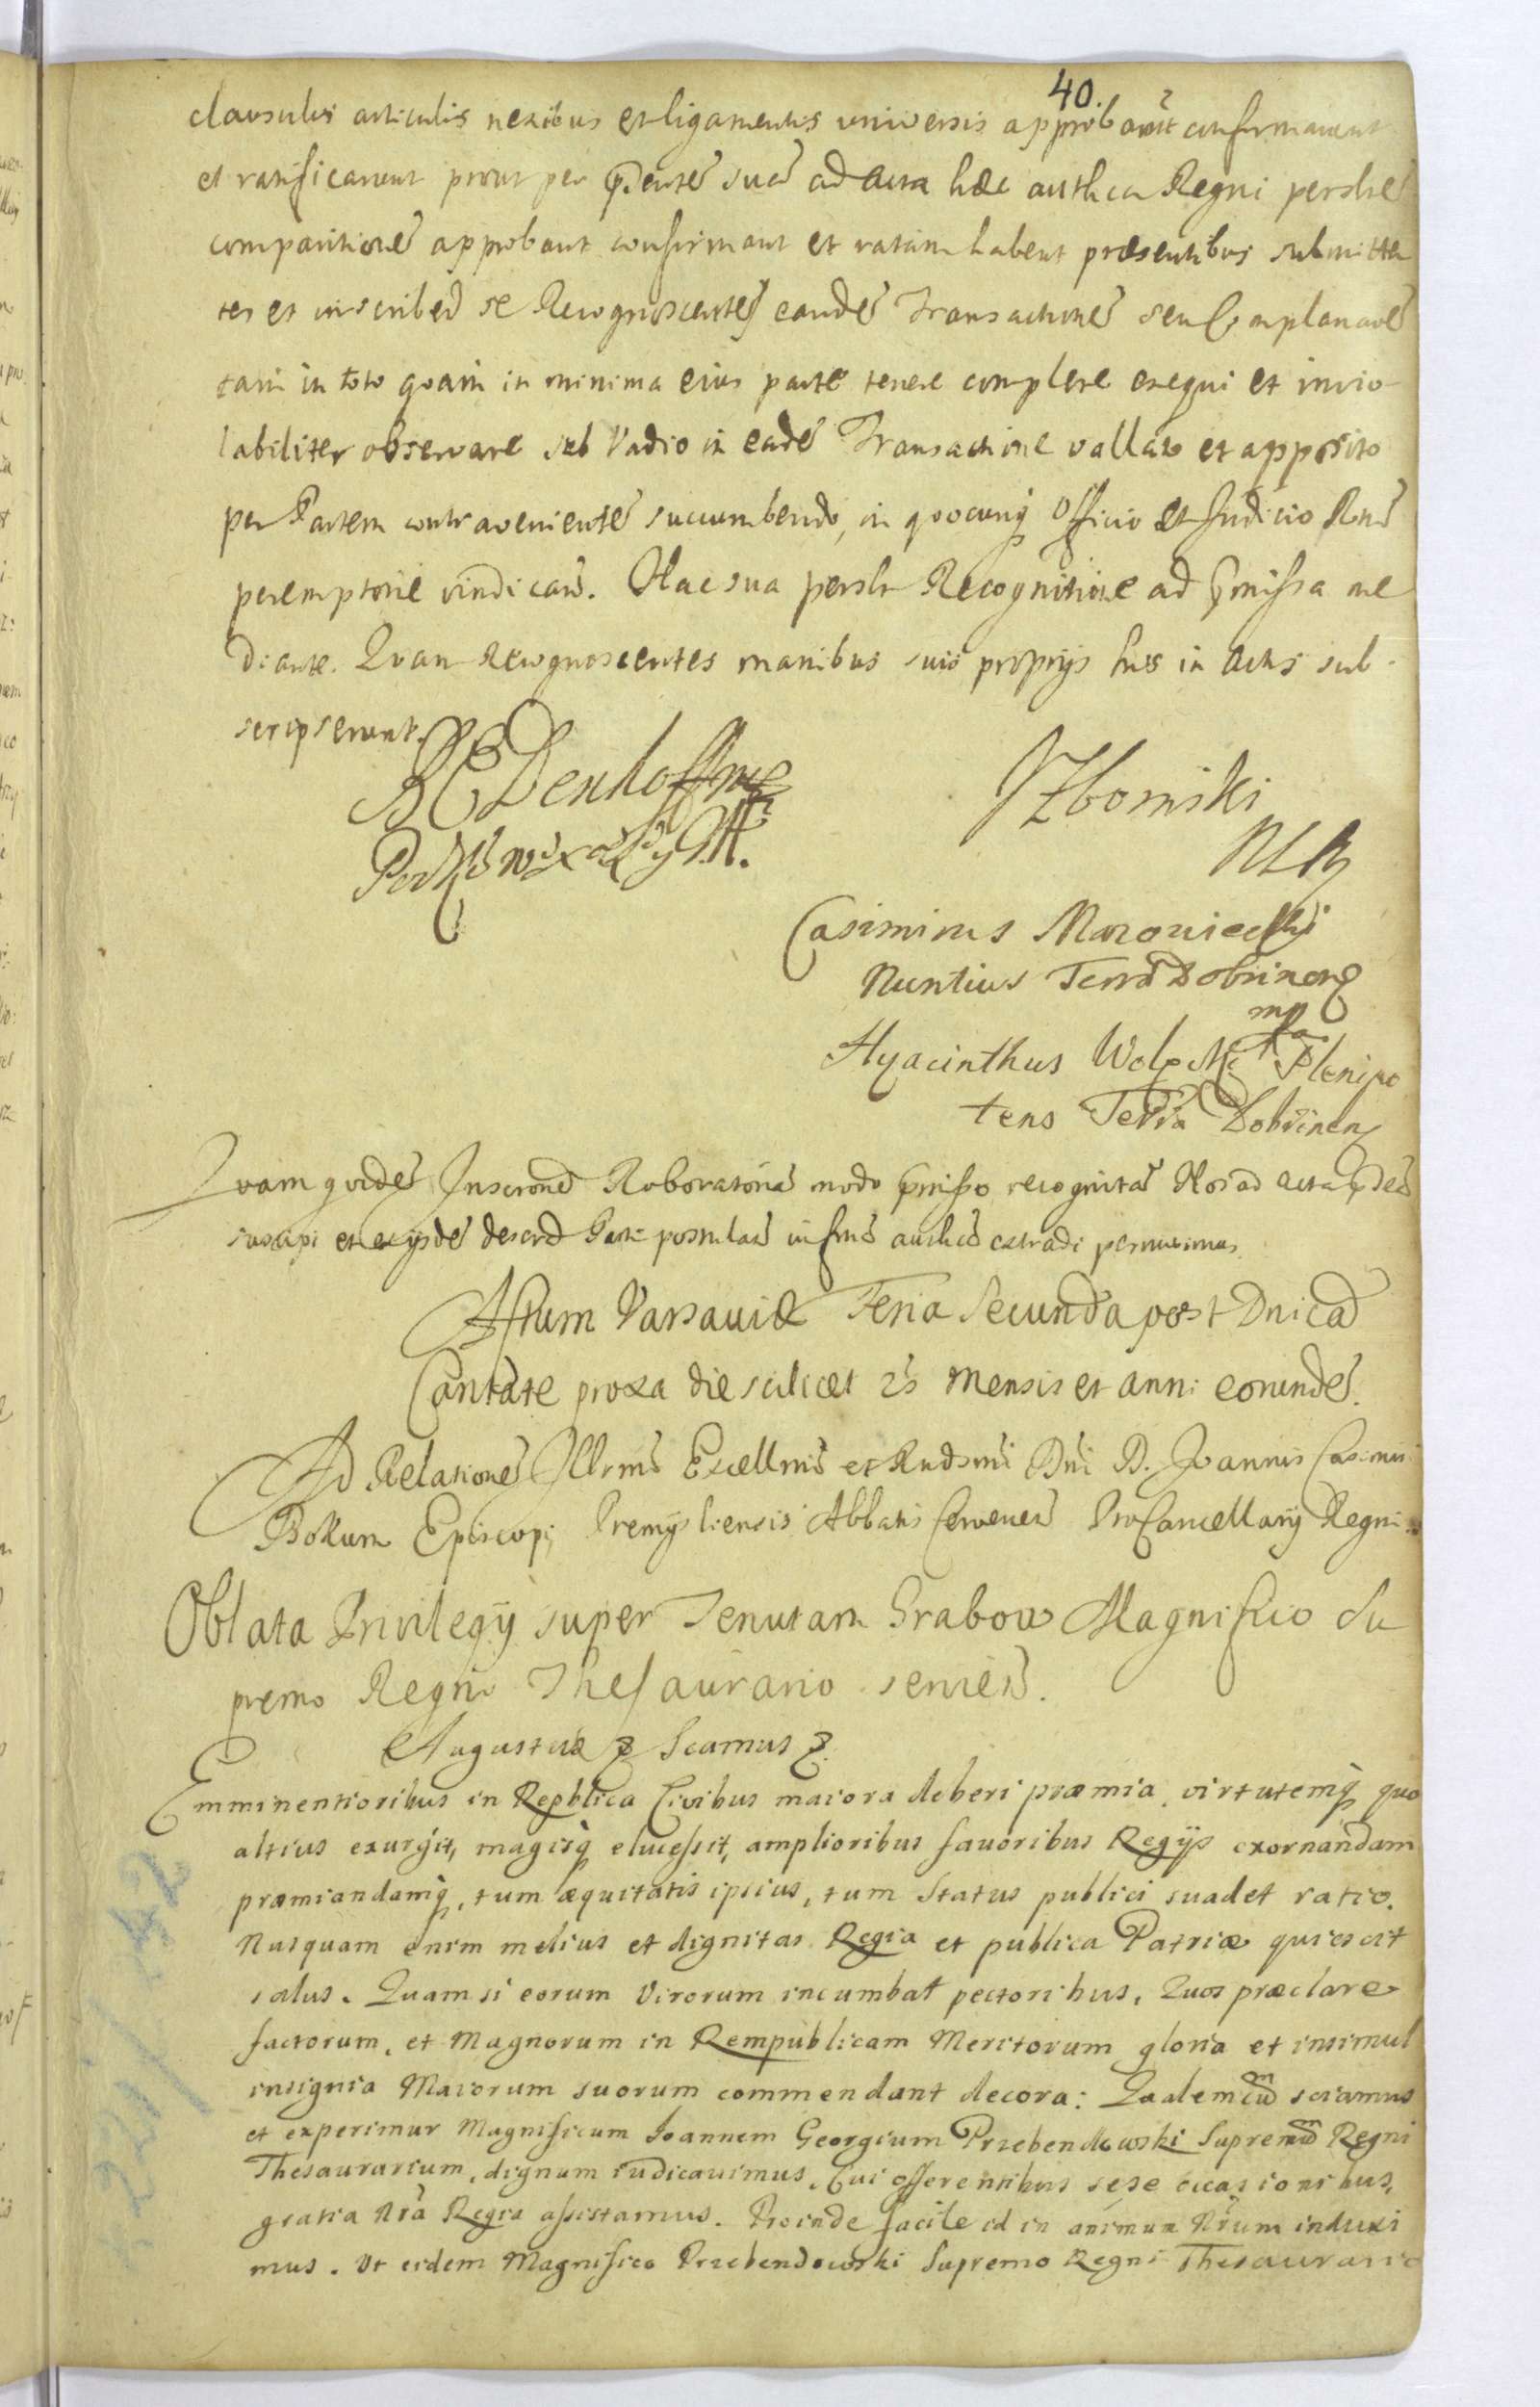 40.
clausulis articulis nexibus et ligamentis universis approbavit confirmarunt
et ratificarunt prout per pñtem suã ad Acta hæc authca Regni persñlẽ
comparitionẽ approbant confirmant et ratam habent præsentibus submitten
tes et inscribeñ se Recognoscentes eandẽ Transactionẽ seu Complanaõẽ
tam in toto quam in minima eius parte tenere complere exequi et invio-
labiliter observare sub Vadio in eadẽ Transactione vallato et apposito
per Partem contravenientẽ succumbendo, in quocunq Officio et Judicio Rni
peremptorie vindicañ. Hac sua persñlr Recognitione ad pmissa me
diante. Quam Recognoscentes manibus suis proprijs hisce in Actis sub-
scripserunt.
B E Denhoff mp
J Zbomiski
Casimirus Mazowiecki
Nuntius Terræ Dobrinens
mp
Hyacinthus Wolski Plenipo
tens Terræ Dobrinen
Quam quidẽ Inscrionẽ Roboratoriã modo pmisso recognitã Nos ad acta pñtia
suscipi et ex ijsdẽ descrõ Parti postulañ in formã authcã extradi permisimus.
Actum Varsaviæ Feria Secunda post Dnicã
Cantate proxa die scilicet 25 Mensis et anni eorundẽ.
Ad Relationẽ Illrmi Excellmi et Rndsmi Dni D. Joannis Casimiri
Bokum Episcopi Premysliensis Abbatis Cerwenen ProCancellarij Regni
Oblata Privilegij super Tenutam Grabow Magnifico Su
premo Regni Thesaurario servieñ.
Augustus 2 Scamus 2.
Emminentioribus in Repblica Civibus maiora deberi præmia, virtutemq quo
altius exurgit, magisq elucessit, amplioribus favoribus Regijs exornandam
præmiandamq, tum æquitatis ipsius, tum Status publici suadet ratio.
Nusquam enim melius et dignitas Regia et publica Patriæ quiescit
salus. Quam si eorum Virorum incumbat pectoribus, Quos præclare
factorum, et Magnorum in Rempublicam Meritorum gloria et insimul
insignia Maiorum suorum commendant decora: Qualem cum sciamus
et experimur Magnificum Joannem Georgium Przebendowski Supremum Regni
Thesaurarium, dignum iudicavimus, Cui offerentibus sese occasionibus,
gratia Nrã Regia assistamus. Proinde facile id in animum Nrum induxi
mus. Ut eidem Magnifico Przebendowski Supremo Regni Thesaurario